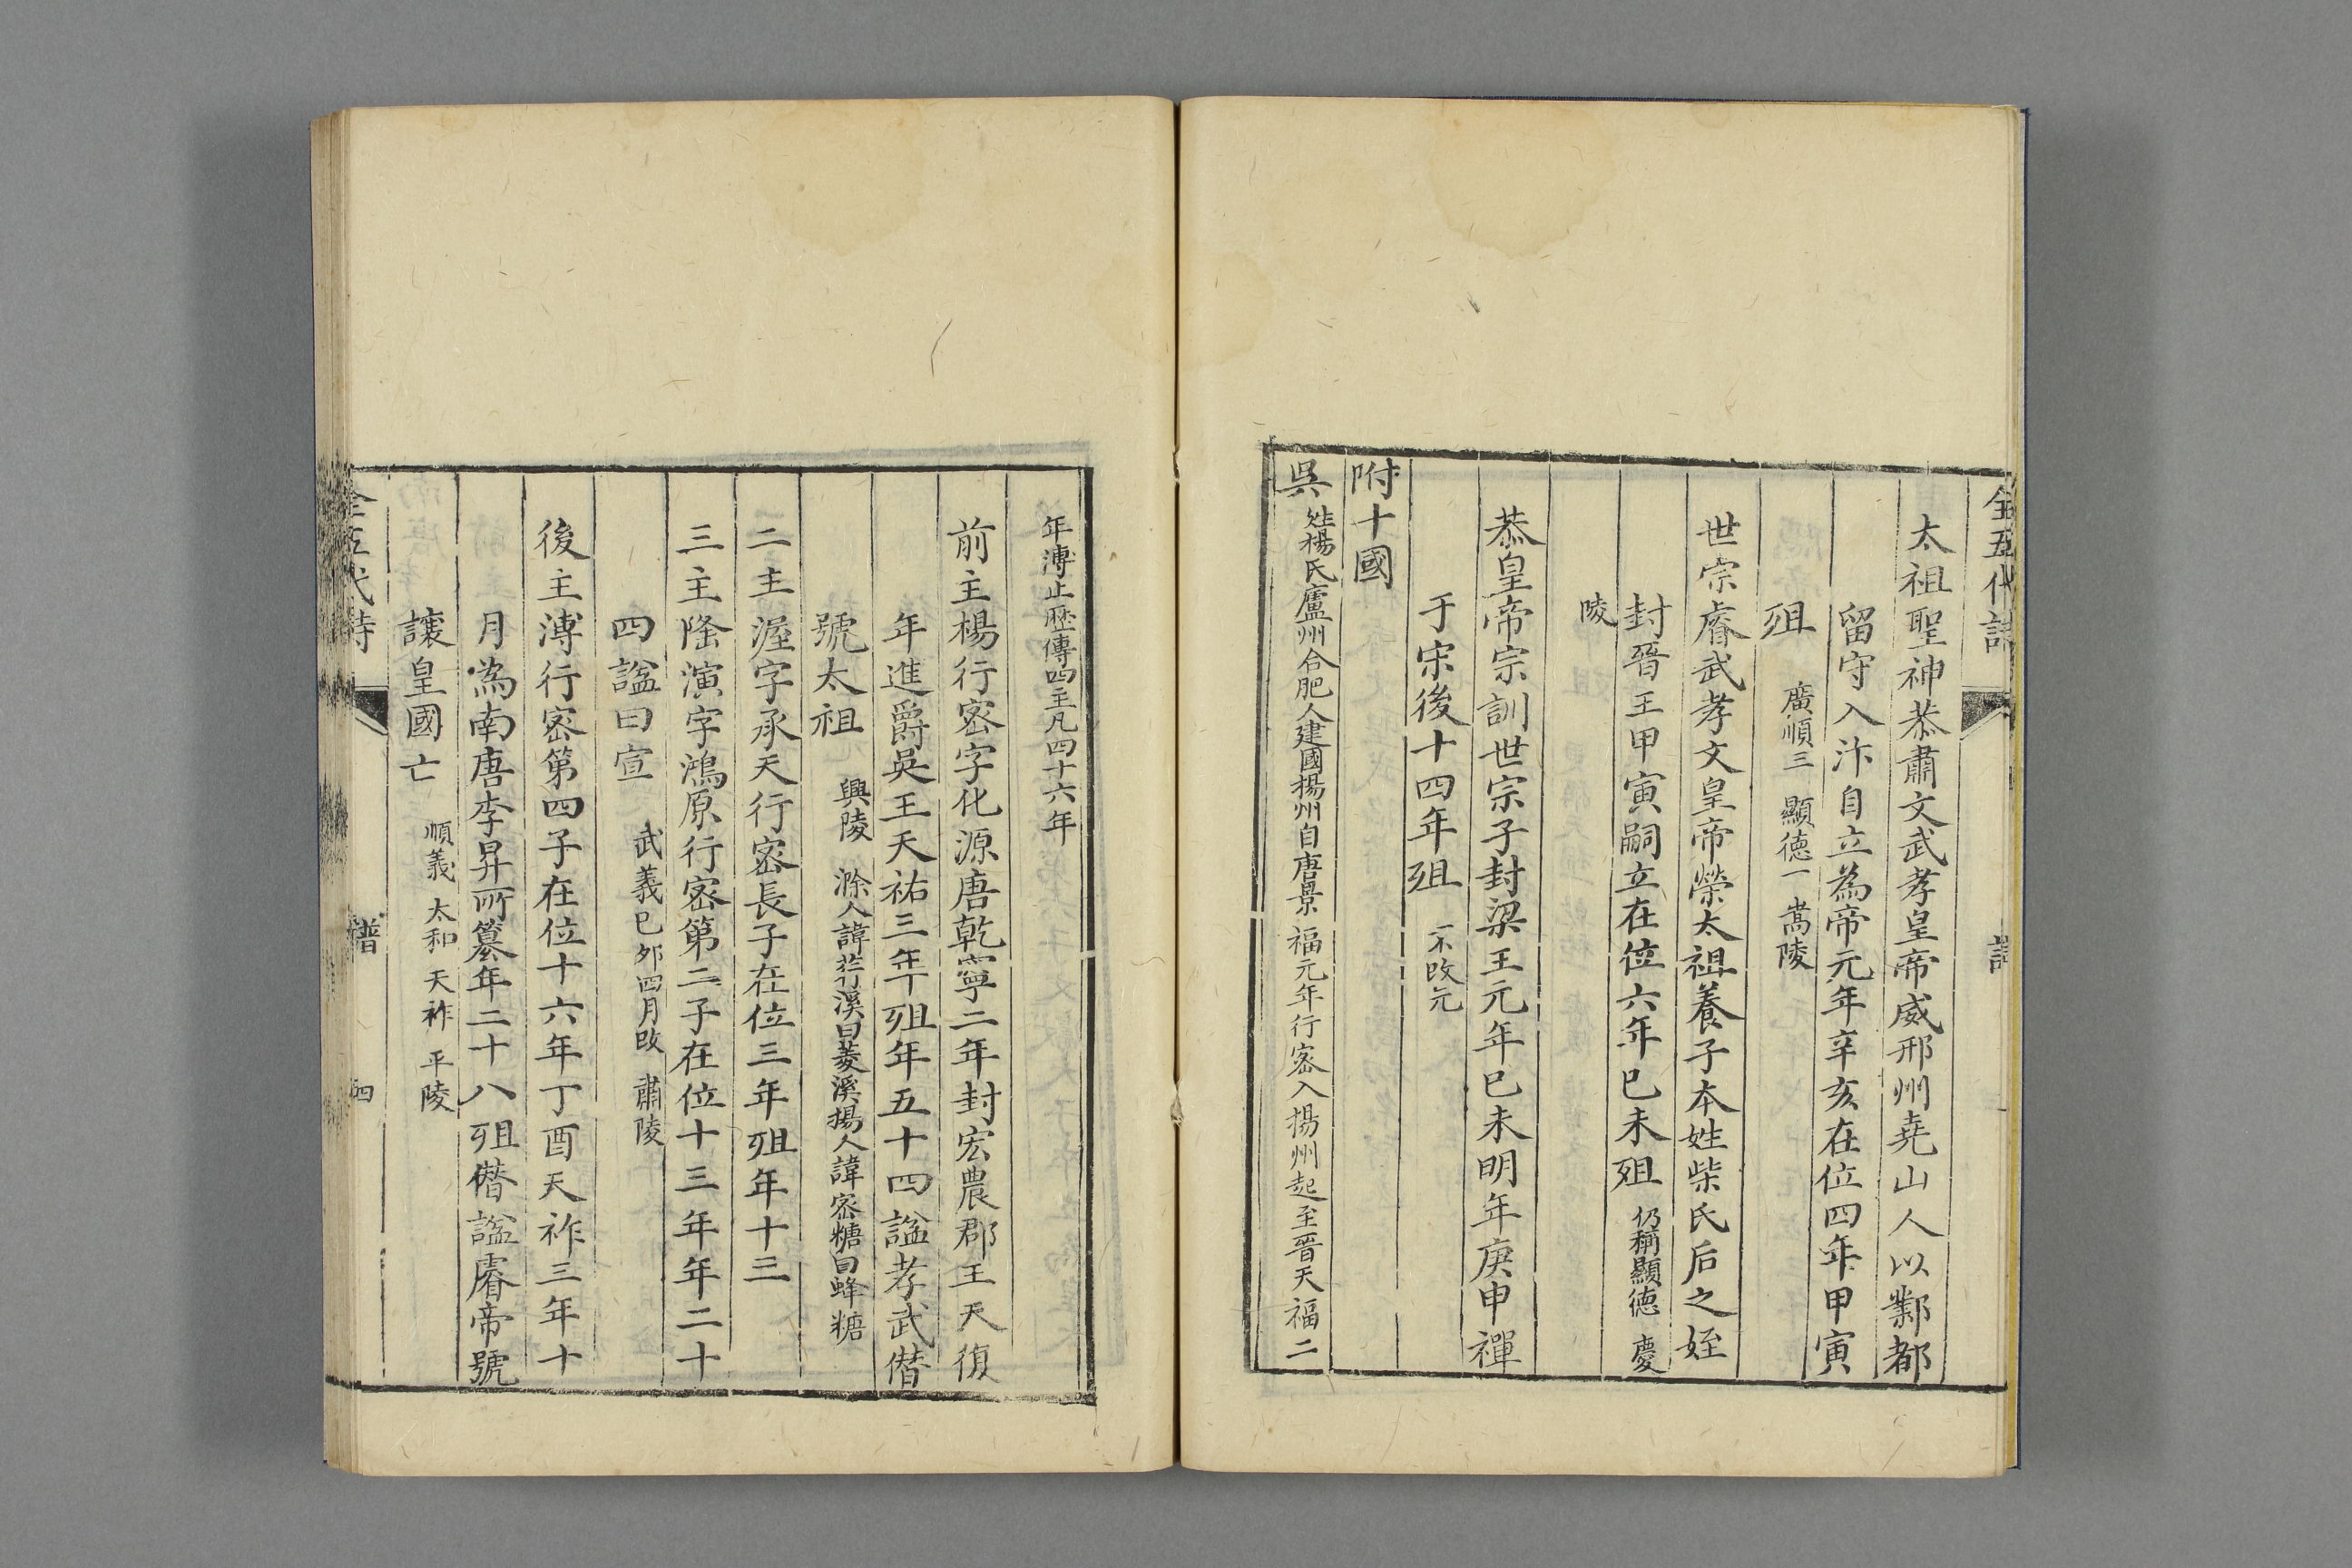 全五代詩
譜
太祖聖神恭肅文武孝皇帝威邢州堯山人以鄴都
留守入汴自立為帝元年辛亥在位四年甲寅
殂 廣順三 顯德一 嵩陵
世宗睿武孝文皇帝榮太祖養子本姓柴氏后之姪
封晉王甲寅嗣立在位六年巳未殂 仍稱顯德 慶
陵
恭皇帝宗訓世宗子封梁王元年巳未明年庚申禪
于宋後十四年殂 不改元
附十國
吳 姓楊氏廬州合肥人建國揚州自唐景福元年行密入揚州起至晉天福二
年溥止歷傳四主凡四十六年
前主楊行密字化源唐乾寧二年封宏農郡王天復
年進爵吳王天祐三年殂年五十四諡孝武僣
號太祖 興陵 滁人諱荇溪曰菱溪揚人諱密糖曰蜂糖
二主渥字承天行密長子在位三年殂年十三
三主隆演字鴻原行密第二子在位十三年年二十
四諡曰宣 武義巳夘四月改 肅陵
後主溥行密第四子在位十六年丁酉天祚三年十
月為南唐李昇所篡年二十八殂僣諡睿帝號
讓皇國亡 順義 太和 天祚 平陵
全五代詩
譜
四